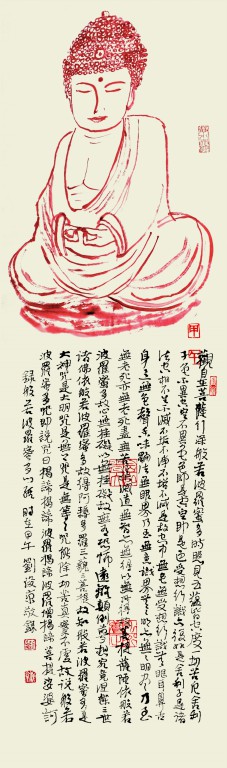 觀自在菩薩行深般若波羅蜜多時照見五蘊皆空度一切苦厄舍利
子色不異空空不異色色即是空空即是色受想行識亦復如是舍利子是諸
法空相不生不滅不垢不淨不增不減是故空中無色無受想行識無眼耳鼻舌
身意無色聲香味觸法無眼界乃至無意識界無無明亦無無明盡乃至
無老死亦無老死盡無苦集滅道無智亦無得以無所得故菩提薩埵依般若
波羅蜜多故心無掛礙無掛礙故無有恐怖遠離顛倒夢想究竟涅槃三世
諸佛依般若波羅蜜多故得阿耨多羅三藐三菩提故知般若波羅蜜多是
大神咒是大明咒是無上咒是無等等咒能除一切苦真實不虛故說般若
波羅蜜多咒即說咒曰揭諦揭諦波羅揭諦波羅僧揭諦菩提娑婆訶
錄般若波羅蜜多心經 時在甲午 劉俊京敬錄